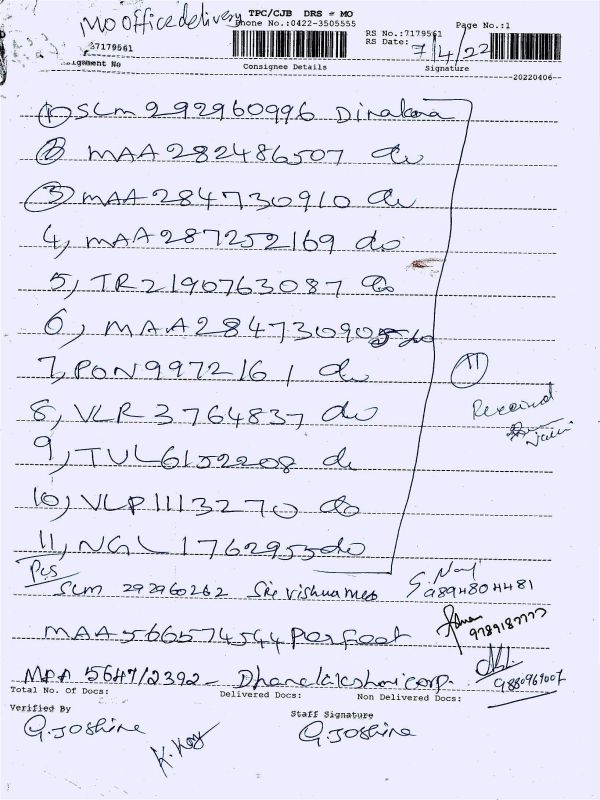 MO office delivery
TPC/CJB DRS = MO
Phone No.:0422-3505555
Page No.:1
RS No.:7179561
37179561
RS Date: 7/4/22
Consignee Details
Signature
20220406
① SLM 292960996 Dinakara
② MAA 282486507 do
③ MAA 284730910 do
4, MAA 287252169 do
5, TRZ190763087 do
6, MAA 284730905 do
7, PON 9972161 do
8, VLR 3764837 do
9, TUL 6152208 do
10, VLP 1113270 do
11, NGL 1762955 do
⑪
Received
Pcs
SLM 292960262 Sri Vishwames
9894804481
MAA 566574544 Perfect
9789187777
MAA 564712392 - Dhanalakshmi corp.
9880969007
Total No. of Docs: Delivered Docs: Non Delivered Docs:
Verified By Staff Signature
G. Joshine G. Joshine